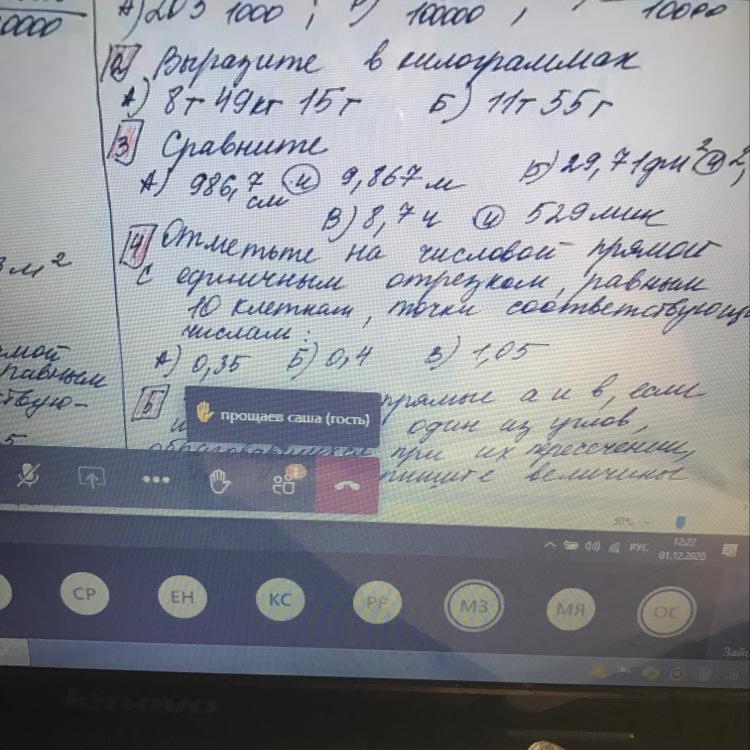 0000
А) 203 1000 ; 10000 , 10000
2 Выразите в килограммах
А) 8т 49кг 15г Б) 11т 55г
3 Сравните
А) 986,7 см и 9,867м Б) 29,71дм² и 2,
В) 8,7ч и 529мин
м²
4 Отметьте на числовой прямой
с единичным отрезком, равным
10 клеткам, точки соответствующ
числам:
А) 0,35 Б) 0,4 В) 1,05
мой
равным
ствую-
5
5 прямые а и в, если
один из углов,
образовавшихся при их пересечении,
величины
прощаев саша (гость)
1
РУС
12:22
01.12.2020
СР ЕН КС РР МЗ МЯ ОС
lenovo